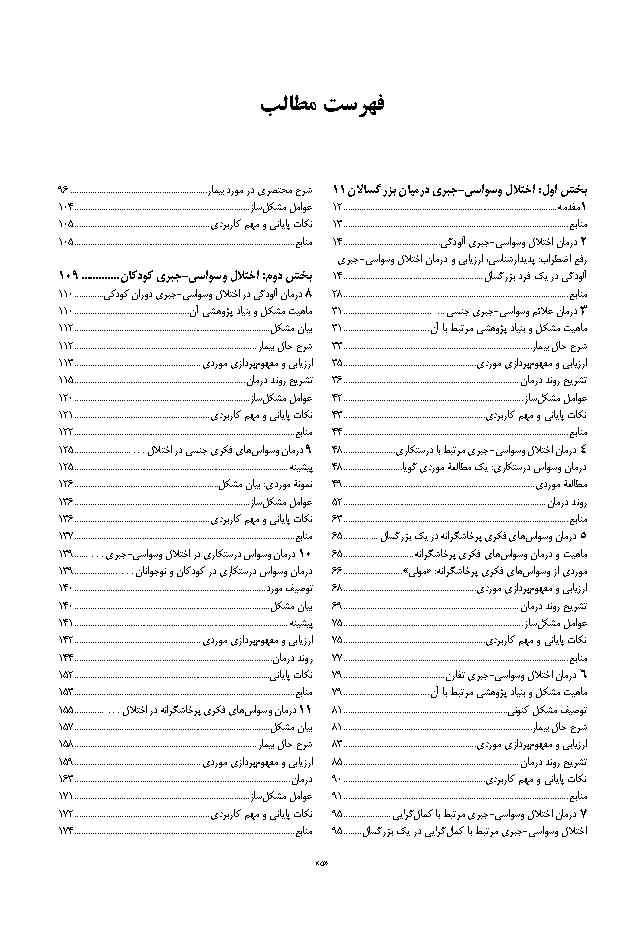 فهرست مطالب
بخش اول: اختلال وسواسی-جبری درمیان بزرگسالان ۱۱
۱مقدمه ........ ۱۲
منابع ........ ۱۳
۲ درمان اختلال وسواسی-جبری آلودگی ........ ۱۴
فرع اضطراب: پدیدارشناسی، ارزیابی و درمان اختلال وسواسی-جبری
آلودگی در یک فرد بزرگسال ........ ۱۴
منابع ........ ۲۸
۳ درمان علائم وسواسی-جبری جنسی ........ ۳۱
ماهیت مشکل و بنیاد پژوهشی مرتبط با آن ........ ۳۱
شرح حال بیمار ........ ۳۳
ارزیابی و مفهوم‌پردازی موردی ........ ۳۵
تشریح روند درمان ........ ۳۶
عوامل مشکل‌ساز ........ ۴۲
نکات پایانی و مهم کاربردی ........ ۴۳
منابع ........ ۴۴
۴ درمان اختلال وسواسی-جبری مرتبط با درستکاری ........ ۴۸
درمان وسواس درستکاری: یک مطالعة موردی گویا ........ ۴۸
مطالعة موردی ........ ۴۹
روند درمان ........ ۵۲
منابع ........ ۶۳
۵ درمان وسواس‌های فکری پرخاشگرانه در یک بزرگسال ........ ۶۵
ماهیت و درمان وسواس‌های فکری پرخاشگرانه ........ ۶۵
موردی از وسواس‌های فکری پرخاشگرانه: «مولی» ........ ۶۶
ارزیابی و مفهوم‌پردازی موردی ........ ۶۸
تشریح روند درمان ........ ۶۹
عوامل مشکل‌ساز ........ ۷۵
نکات پایانی و مهم کاربردی ........ ۷۵
منابع ........ ۷۷
۶ درمان اختلال وسواسی-جبری تقارن ........ ۷۹
ماهیت مشکل و بنیاد پژوهشی مرتبط با آن ........ ۷۹
توصیف مشکل کنونی ........ ۸۱
شرح حال بیمار ........ ۸۱
ارزیابی و مفهوم‌پردازی موردی ........ ۸۳
تشریح روند درمان ........ ۸۵
نکات پایانی و مهم کاربردی ........ ۹۰
منابع ........ ۹۱
۷ درمان اختلال وسواسی-جبری مرتبط با کمال‌گرایی ........ ۹۵
اختلال وسواسی-جبری مرتبط با کمال‌گرایی در یک بزرگسال ........ ۹۵
شرح مختصری در مورد بیمار ........ ۹۶
عوامل مشکل‌ساز ........ ۱۰۴
نکات پایانی و مهم کاربردی ........ ۱۰۵
منابع ........ ۱۰۵
بخش دوم: اختلال وسواسی-جبری کودکان ........ ۱۰۹
۸ درمان آلودگی در اختلال وسواسی-جبری دوران کودکی ........ ۱۱۰
ماهیت مشکل و بنیاد پژوهشی آن ........ ۱۱۰
بیان مشکل ........ ۱۱۲
شرح حال بیمار ........ ۱۱۲
ارزیابی و مفهوم‌پردازی موردی ........ ۱۱۳
تشریح روند درمان ........ ۱۱۵
عوامل مشکل‌ساز ........ ۱۲۰
نکات پایانی و مهم کاربردی ........ ۱۲۱
منابع ........ ۱۲۲
۹ درمان وسواس‌های فکری جنسی در اختلال ... ........ ۱۲۵
پیشینه ........ ۱۲۵
نمونة موردی: بیان مشکل ........ ۱۲۶
عوامل مشکل‌ساز ........ ۱۳۶
نکات پایانی و مهم کاربردی ........ ۱۳۶
منابع ........ ۱۳۷
۱۰ درمان وسواس درستکاری در اختلال وسواسی-جبری ... ........ ۱۳۹
درمان وسواس درستکاری در کودکان و نوجوانان ... ........ ۱۳۹
توصیف مورد ........ ۱۴۰
بیان مشکل ........ ۱۴۰
پیشینه ........ ۱۴۱
ارزیابی و مفهوم‌پردازی موردی ........ ۱۴۲
روند درمان ........ ۱۴۴
نکات پایانی ........ ۱۵۲
منابع ........ ۱۵۳
۱۱ درمان وسواس‌های فکری پرخاشگرانه در اختلال ... ........ ۱۵۵
بیان مشکل ........ ۱۵۷
شرح حال بیمار ........ ۱۵۸
ارزیابی و مفهوم‌پردازی موردی ........ ۱۵۹
درمان ........ ۱۶۳
عوامل مشکل‌ساز ........ ۱۷۱
نکات پایانی و مهم کاربردی ........ ۱۷۲
منابع ........ ۱۷۴